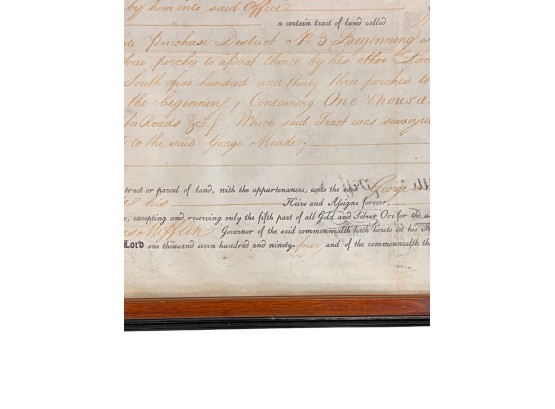 by him into said Office
a certain tract of land called
Purchase District No 3 Beginning
three perches to a post thence by his other Land
South five hundred and thirty three perches to
the beginning, Containing One thousa
Roads &c, Which said Tract was surveyed
to the said George Meade;
tract or parcel of land, with the appurtenances, unto the said George
his
Heirs and Assigns forever,
excepting and reserving only the fifth part of all Gold and Silver Ore for the u
Mifflin Governor of the said commonwealth hath hereto set his
Lord one thousand seven hundred and ninety-four and of the commonwealth th